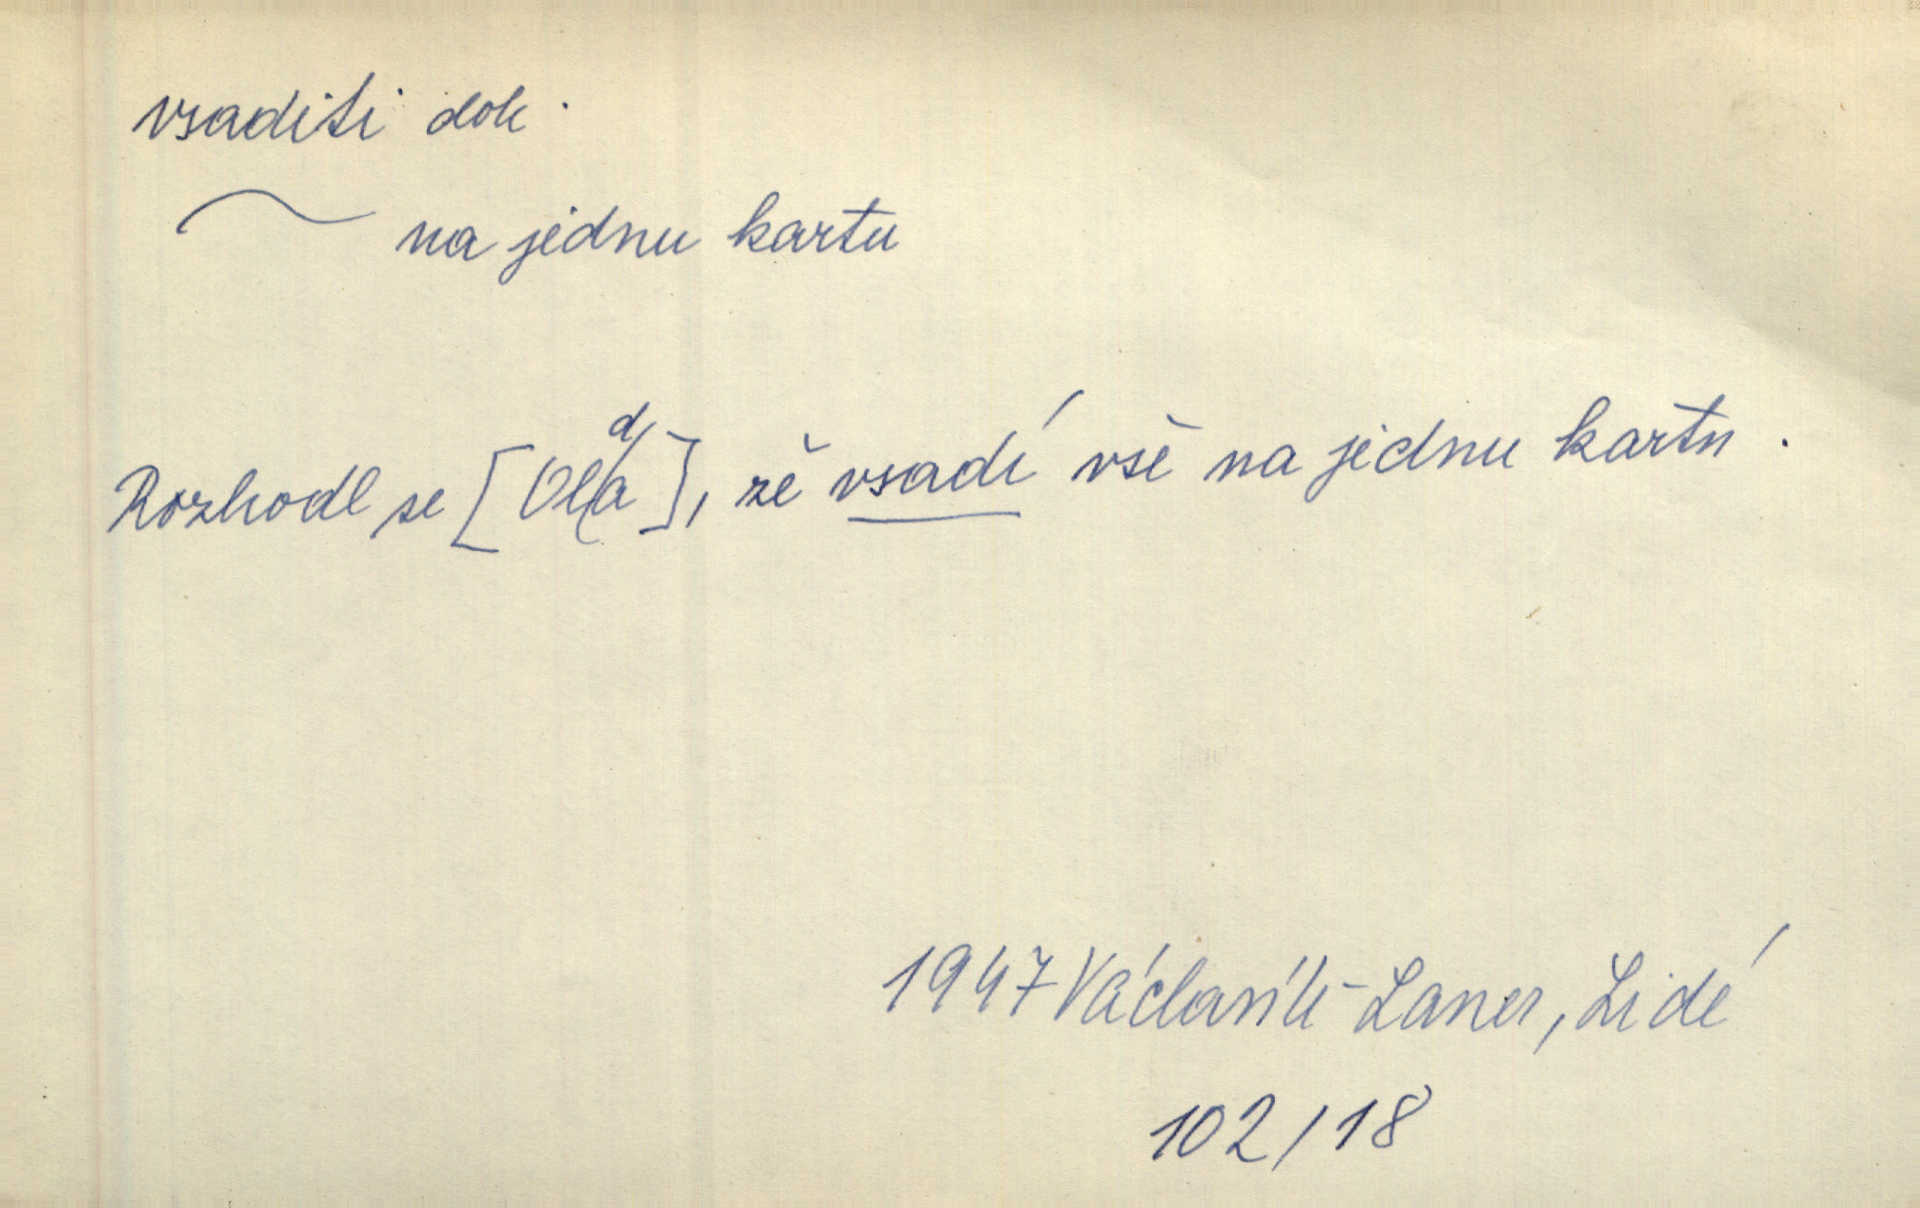 vsaditi dok.
~ na jednu kartu
Rozhodl se [Olda], že vsadí vše na jednu kartu.
1947 Václavík-Laner, Lidé
102/18